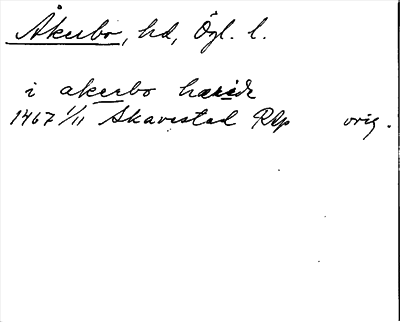 Åkerbo, hd, Ögl. l.
i akerbo hæridz
1467 1/11 Skavestad RAp orig.